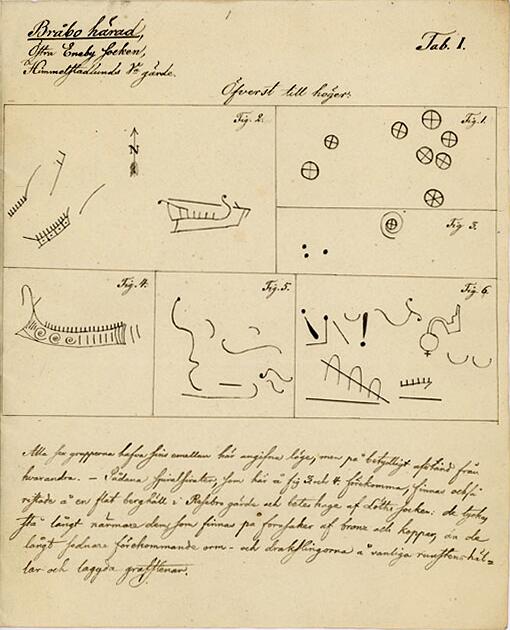 Bråbo härad,
Östra Eneby socken,
Himmelstadlunds Vª gärde.
Tab. 1.
Öfverst till höger:
Fig. 2.
N
Fig. 1.
Fig. 3.
Fig. 4.
Fig. 5.
Fig. 6.
Alla sex grupperna hafva sins emellan här angifna läge, men på betydligt afstånd från
hvarandra. — Sådana spiralsirater, som här å fig 3 och 4 förekomma, finnas också
ristade å en flat berghäll i gärde och beteshage af socken: de tyckas
långt närmare dem, som finnas på fornsaker af brons och koppar, än de
långt sednare förekommande orm- och drakslingorna å vanliga runstenshäl=
lar och lagda grafstenar.